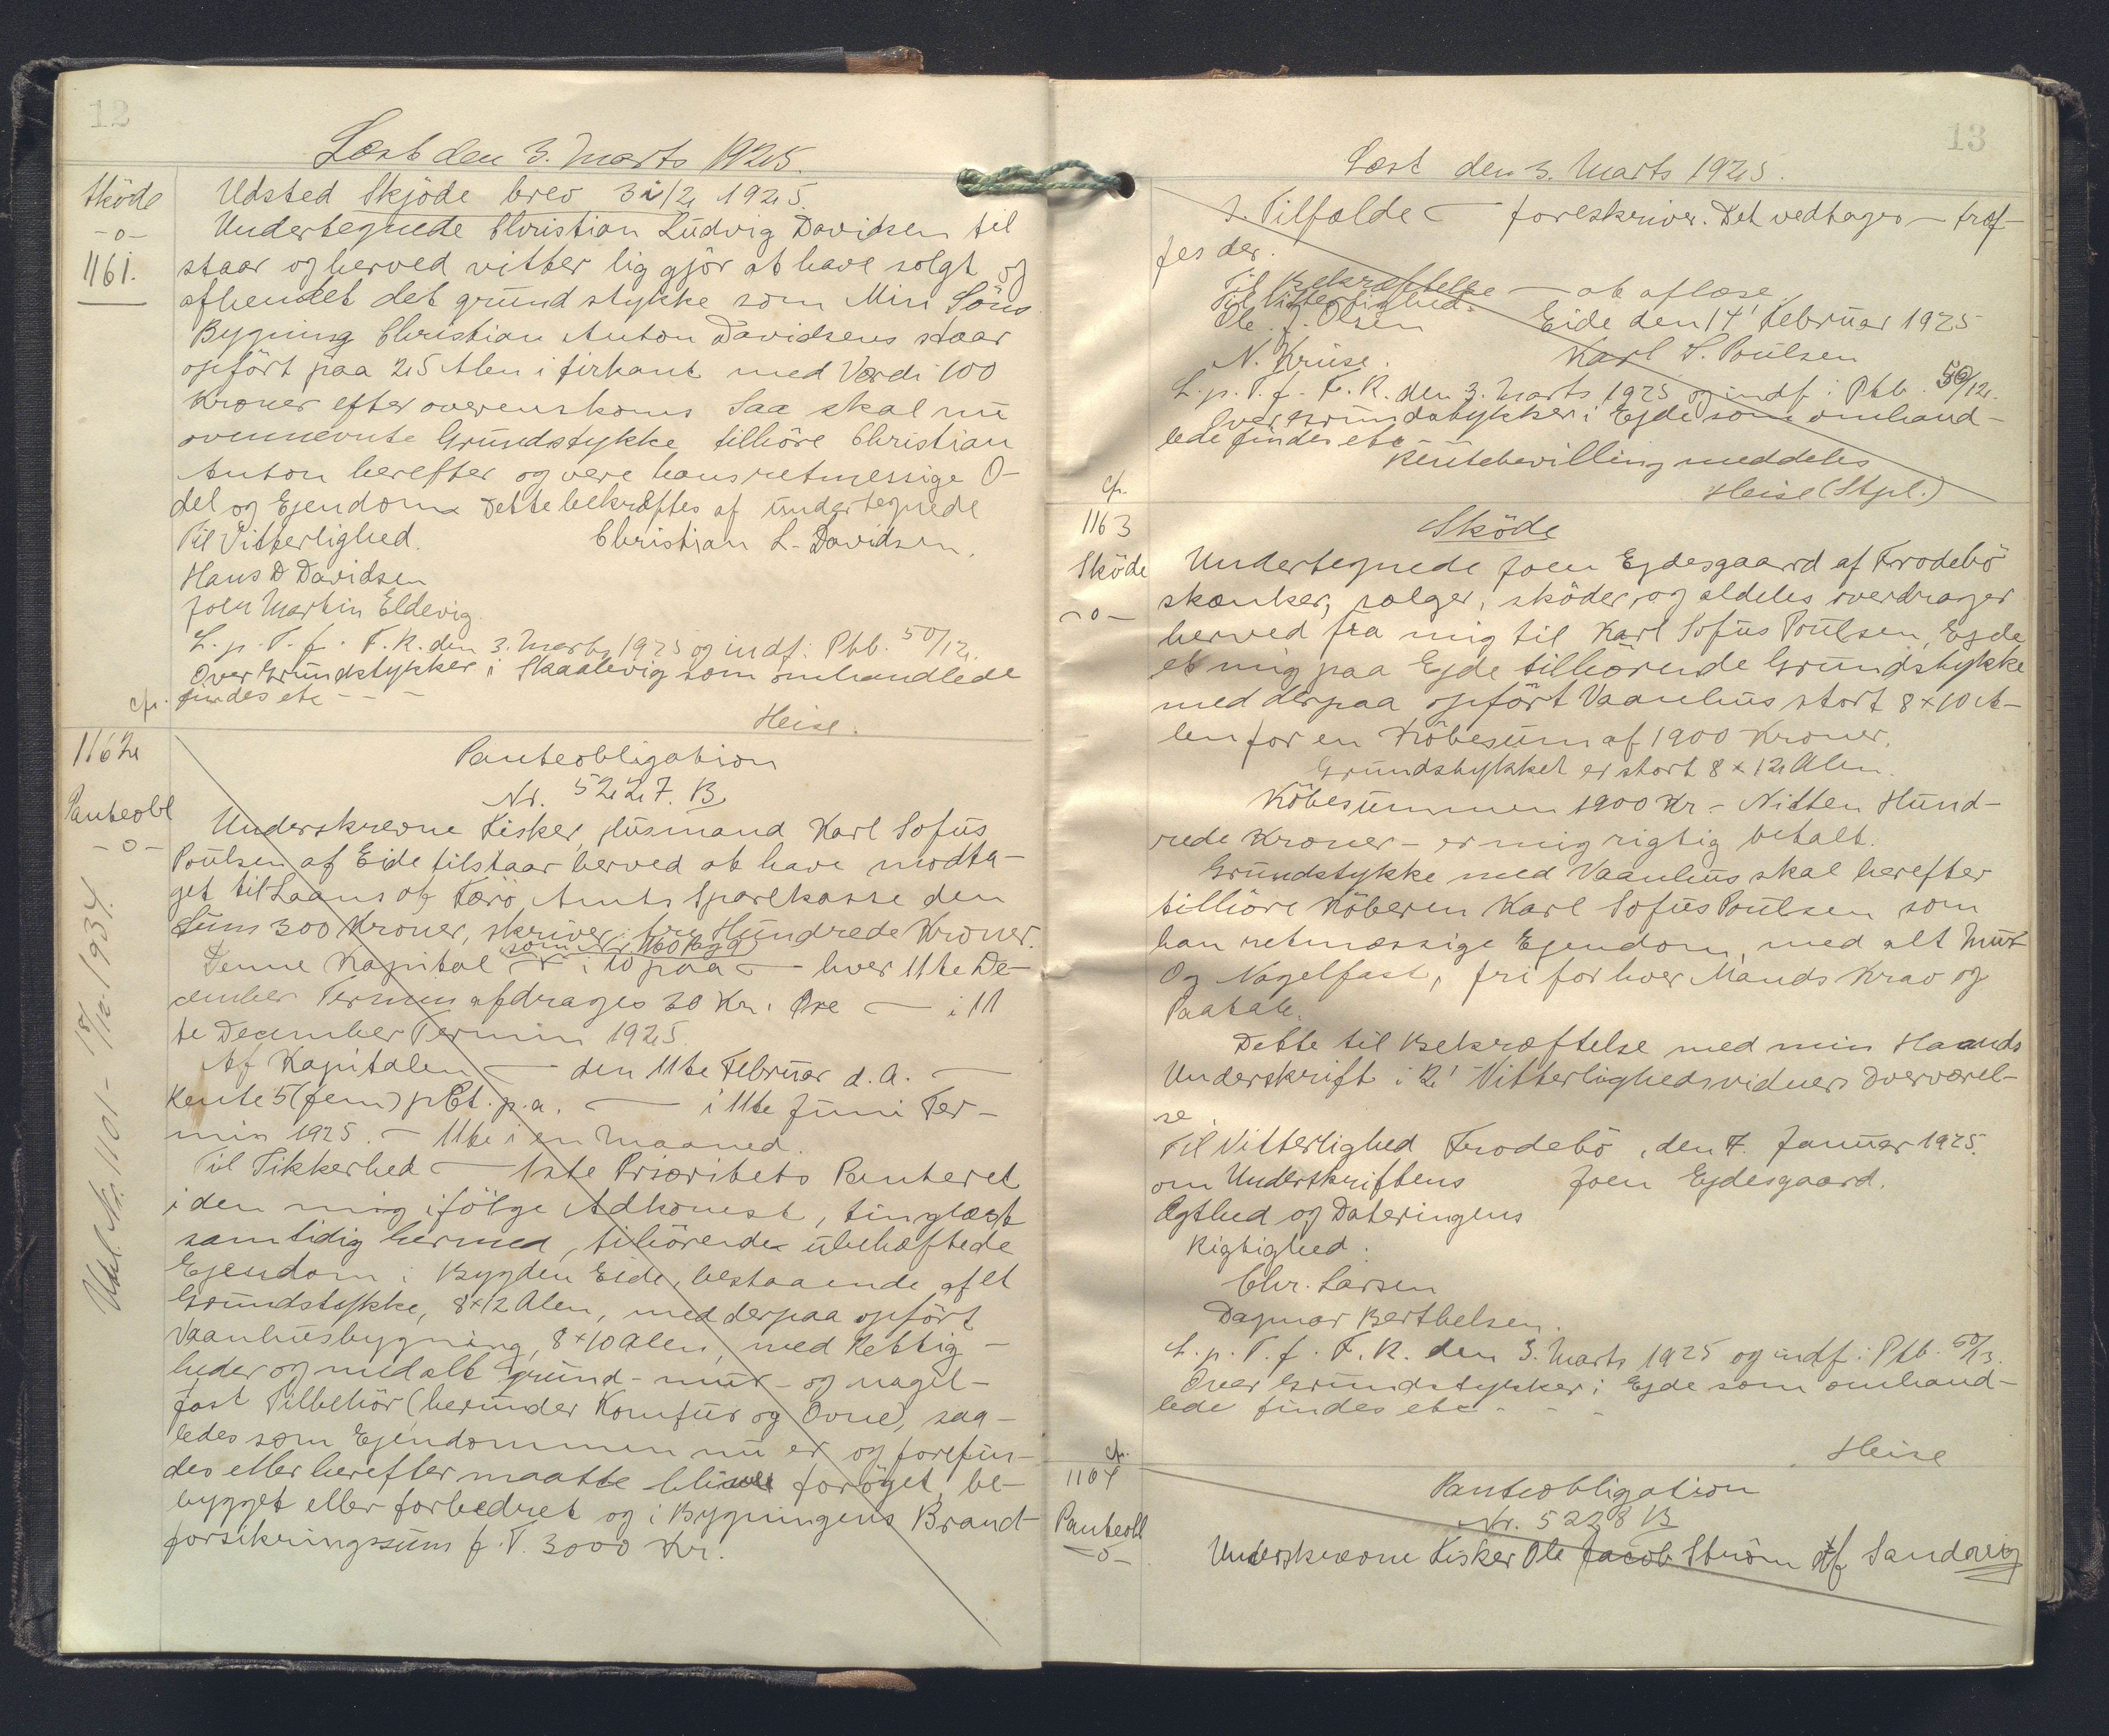 12
Læst den 3. Marts 1925.
Sköde
-o-
1161.
Udsted Skjöde brev 3 1/2 1925.
Undertegnede Christian Ludvig Davidsen til
staar og herved vitter lig gjör at have solgt og
afhendet det grund stykke som Min Söns
Bygning Christian Anton Davidsens staar
opfört paa 25 Alen i firkant med Værdi 100
Kroner efter overenskoms Saa skal nu
ovennevnte Grundstykke tilhöre Christian
Anton herefter og vere hans retmessige O-
del og Ejendom Dette bekræftes af undertegnede
Til Vitterlighed. Christian L. Davidsen.
Hans D Davidsen
Joen Martin Eldevig.
L. p. T. f. F. R. den 3. Marts 1925 og indf: Ptb. 50/12.
Over Grundstykker i Skaalevig som omhandlede
findes etc - - -
cfr.
Heise.
1162
Panteobl
-o-
Panteobligation
Nr. 5227. B.
Underskrevne Fisker, Husmand Karl Sofus
Poulsen af Eide tilstaar herved at have modta-
get til Laans af Færö Amts Sparekasse den
Sum 300 Kroner, skriver: tre Hundrede Kroner.
Denne Kapital — i 10 paa — hver 11te De-
cember Termin afdrages 30 Kr. Öre — i 11
te December Termin 1925.
Af Kapitalen — den 11te Februar d. A. —
Rente 5 (fem) pCt. p. a. — i 11te Juni Ter-
min 1925. — 11te i en Maaned.
Til Sikkerhed — 1ste Prioritets Panteret
i den mig ifölge Adkomst, tinglæst
samtidig hermed, tihörende ubehæftede
Ejendom i Bygden Eide, bestaaende af et
Grundstykke, 8×12 Alen, med derpaa opfört
Vaanhusbygning, 8×10 Alen, med Rettig-
heder og med alt grund- mur- og nagel-
fast Tilbehör (herunder Komfur og Ovne), saa-
ledes som Ejendommen nu er og forefin-
des eller herefter maatte blive foröget, be-
bygget eller forbedret og i Bygningens Brand-
forsikringssum p. T. 3000 Kr.
Udsl. Nr. 1101 - 18/12 1934.
13
Læst den 3. Marts 1925.
I. Tilfælde — foreskriver. Det vedtages — træf-
fes der.
Til Bekræftelse — at aflæse,
Til Vitterlighed. Eide den 14' Februar 1925
Ole. J. Olsen
N. Kruse. Karl S. Poulsen
L. p. T. f. F. R. den 3. Marts 1925 og indf: Ptb. 50/12.
Over Grundstykker i Ejde som omhand-
lede findes etc - - -
Rentebevilling meddeles
Heise (Stpl.)
cfr.
1163
Sköde
-o-
Sköde
Undertegnede Joen Ejdesgaard af Frodebö
skænker, sælger, sköder, og aldeles overdrager
herved fra mig til Karl Sofus Poulsen, Ejde
et mig paa Ejde tilhörende Grundstykke
med derpaa opfört Vaanhus stort 8×10 A-
len for en Köbesum af 1900 Kroner.
Grundstykket er stort 8×12 Alen.
Köbesummen 1900 Kr - Nitten Hund-
rede Kroner - er mig rigtig betalt.
Grundstykke med Vaanhus skal herefter
tilhöre Köberen Karl Sofus Poulsen som
han retmæssige Ejendom, med alt Mur
Og Nagelfast, fri for hver Mands Krav og
Paatale.
Dette til Bekræftelse med min Haands
Underskrift i 2' Vitterlighedsvidners Overværel-
se
Til Vitterlighed Frodebö, den 7. Januar 1925.
om Underskriftens Joen Ejdesgaard.
Ægthed og Dateringens
Rigtighed.
Chr. Larsen
Dagmar Berthelsen.
L. p. T. f. F. R. den 3. Marts 1925 og indf: Ptb. 50/13.
Over Grundstykker i Ejde som omhand-
lede findes etc - - -
cfr.
Heise
1164
Panteobl
-o-
Panteobligation
Nr. 5228 B
Underskrevne Fisker Ole Jacob Ström Af Sandvig